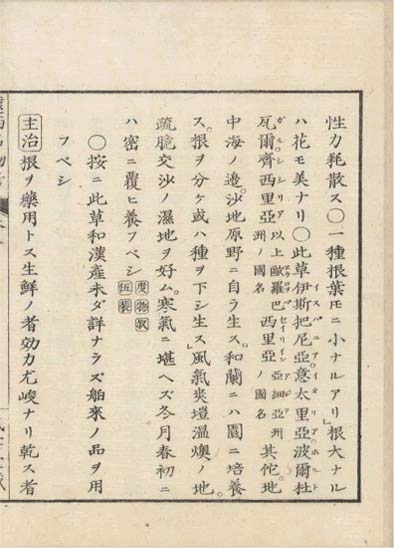 性力耗散ス○一種根葉𪜈ニ小ナルアリ」根大ナル
ハ花モ美ナリ○此草伊斯把尼亞意太里亞波爾杜
瓦爾齊西里亞以上歐羅巴洲ノ國名西里亞亞細亞洲ノ國名其佗地
中海ノ邊沙地原野ニ自ラ生ス和蘭ニハ園ニ培養
ス根ヲ分ケ或ハ種ヲ下シ生ス」風氣爽塏温燠ノ地
疏脆交沙ノ濕地ヲ好ム寒氣ニ堪ヘズ冬月春初ニ
ハ密ニ覆ヒ養フベシ
○按ニ此草和漢産未ダ詳ナラズ舶來ノ品ヲ用
フベシ
主治 根ヲ藥用トス生鮮ノ者効力尤峻ナリ乾ス者